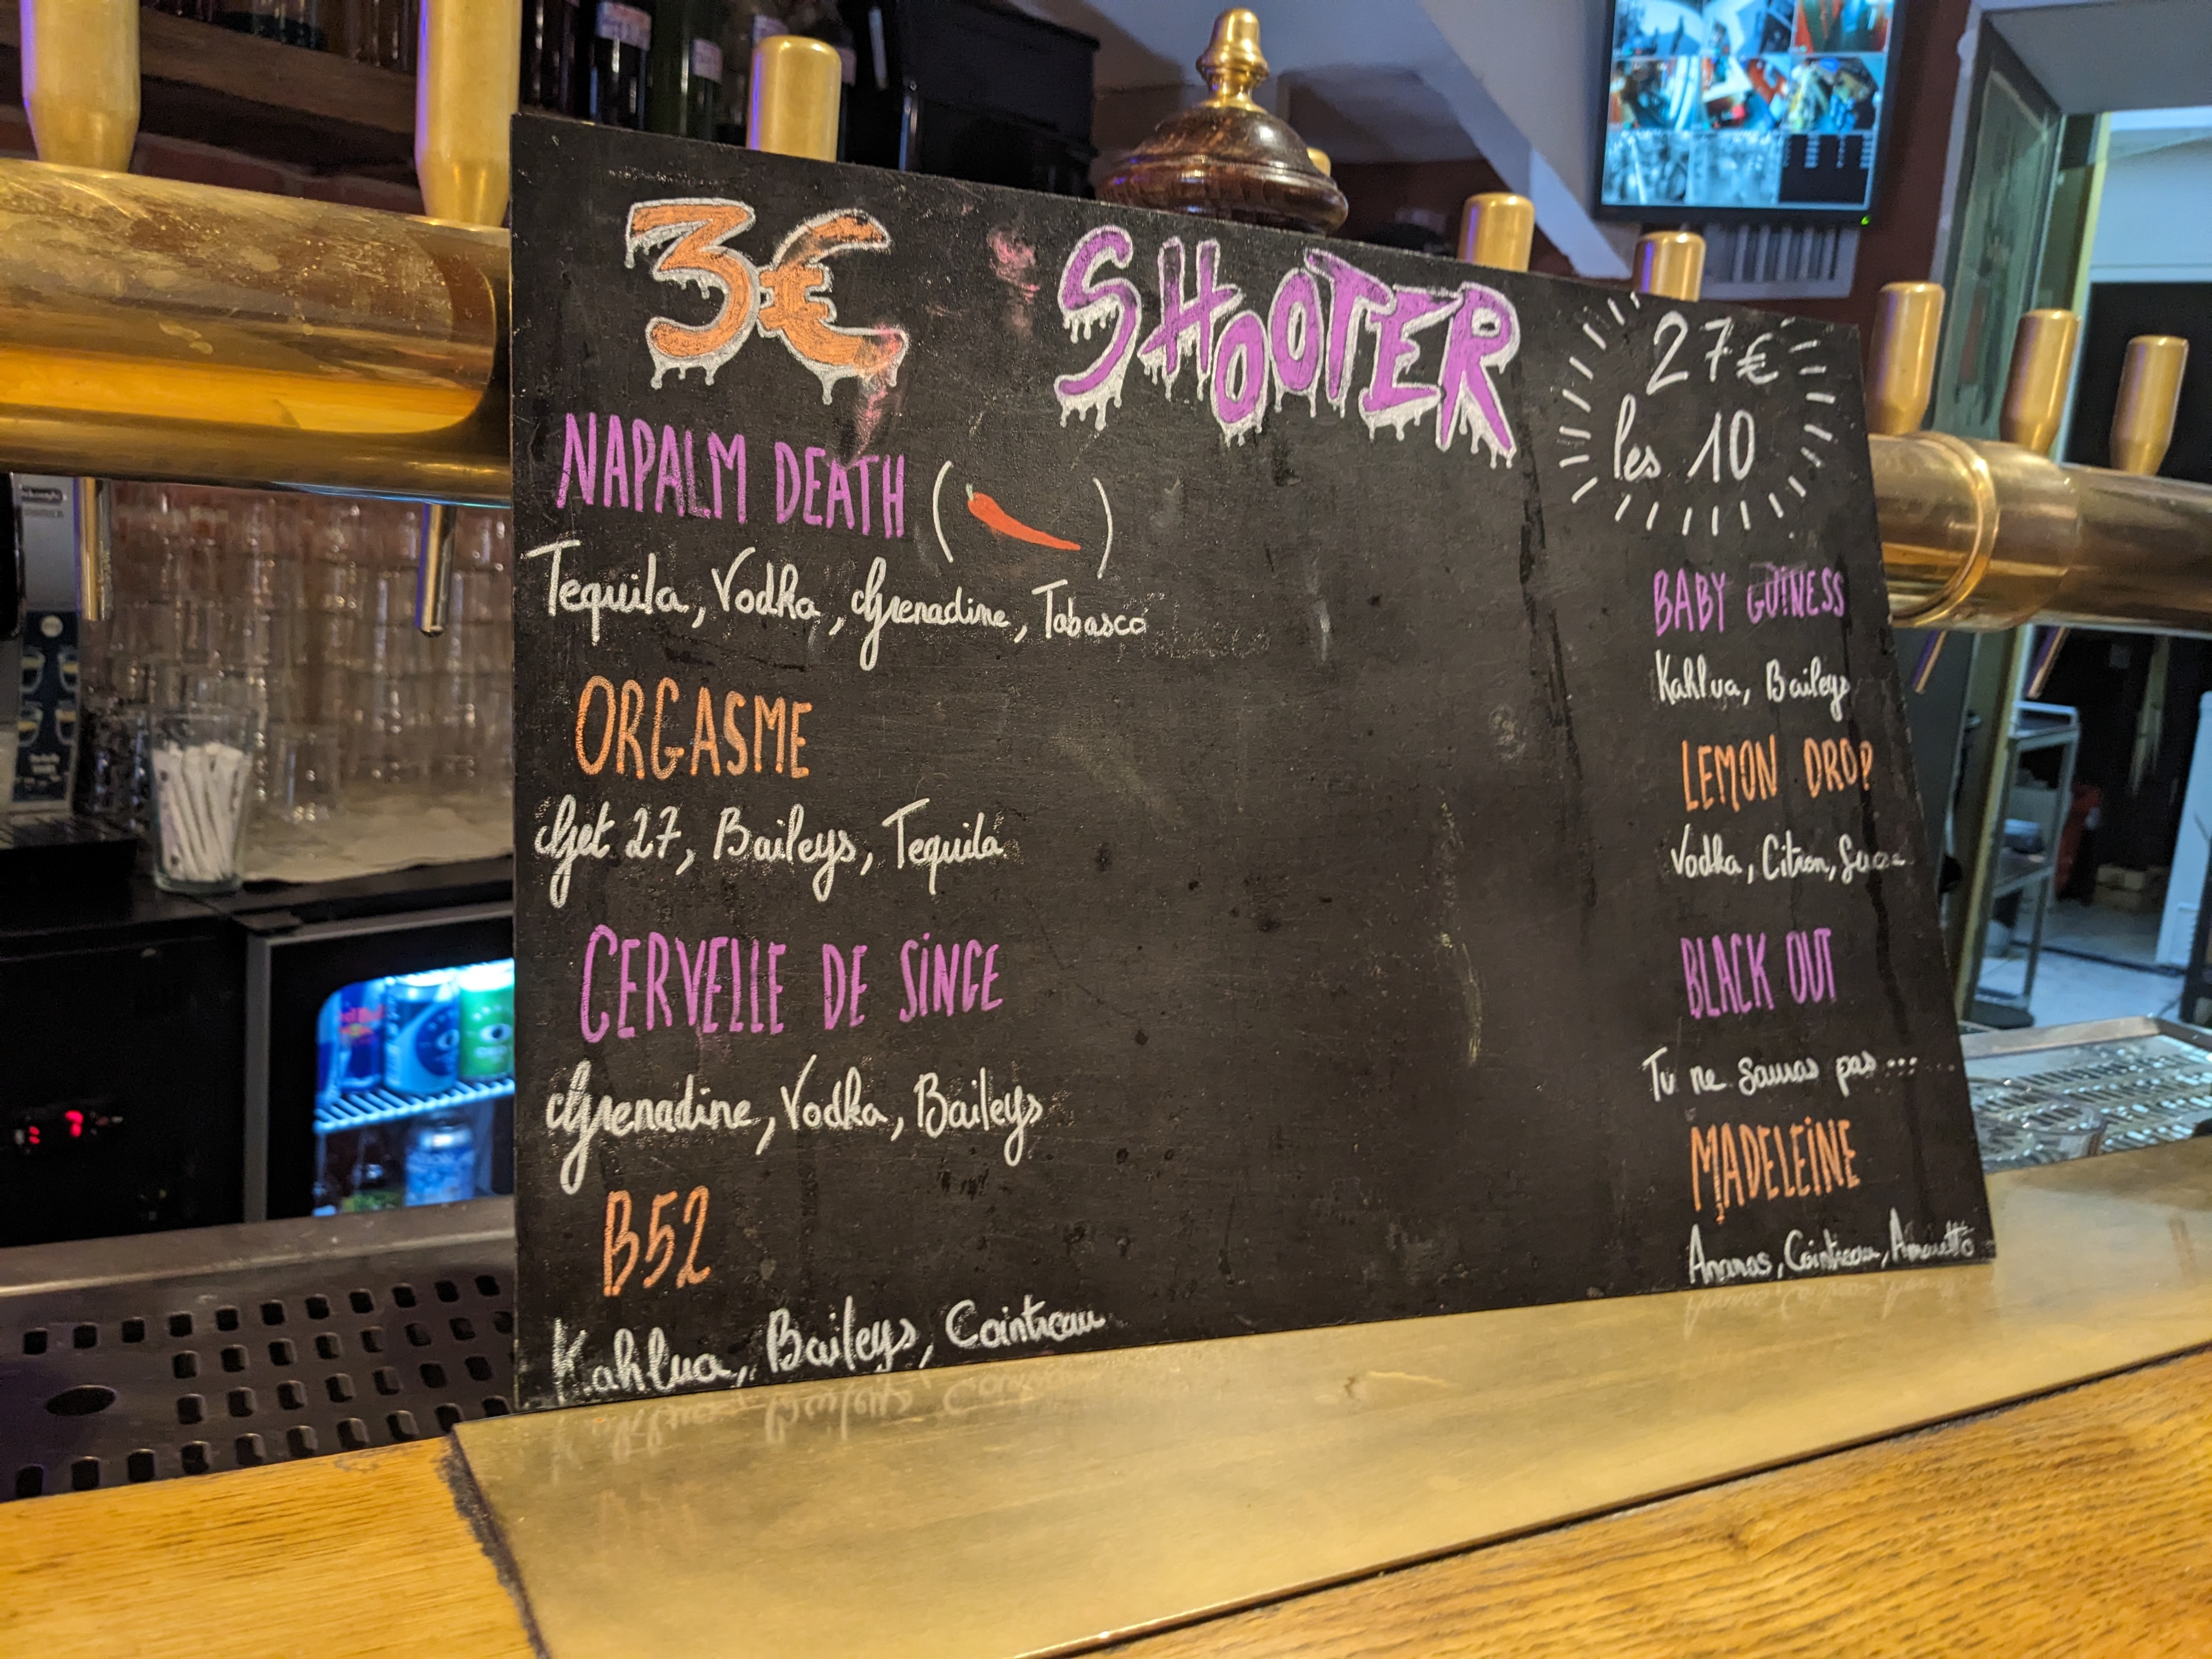 3€ SHOOTER
27€
les 10
NAPALM DEATH ( )
Tequila, Vodka, Grenadine, Tabasco
ORGASME
Get 27, Baileys, Tequila
CERVELLE DE SINGE
Grenadine, Vodka, Baileys
B52
Kahlua, Baileys, Cointreau
BABY GUINESS
Kahlua, Baileys
LEMON DROP
Vodka, Citron, Sucre
BLACK OUT
Tu ne sauras pas...
MADELEINE
Ananas, Cointreau, Amaretto